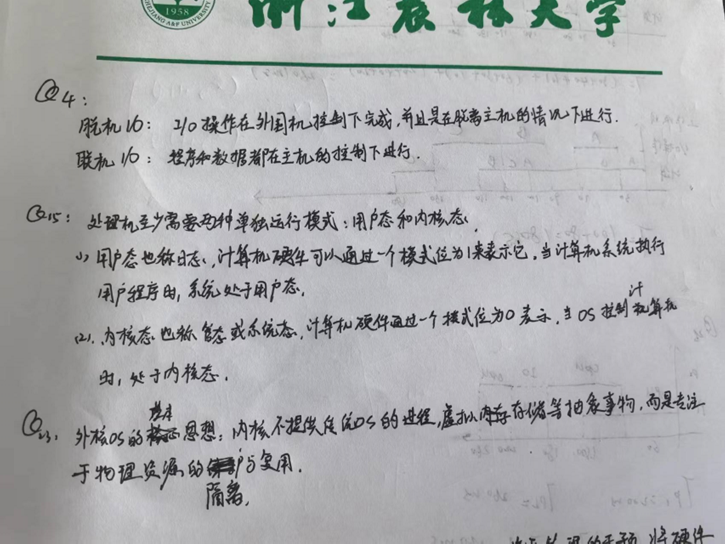 ZHEJIANG A&F UNIVERSITY
1958
浙江农林大学
Q4:
脱机I/O: I/O操作在外围机控制下完成,并且是在脱离主机的情况下进行.
联机I/O: 程序和数据都在主机的控制下进行.
Q15: 处理机至少需要两种单独运行模式:用户态和内核态.
(1) 用户态也称目态,计算机硬件可以通过一个模式位为1来表示它.当计算机系统执行
用户程序时,系统处于用户态.
(2). 内核态也称管态或系统态,计算机硬件通过一个模式位为0表示,当OS控制计算机
时,处于内核态.
Q23. 外核OS的基本思想:内核不提供传统OS的进程,虚拟内存存储等抽象事物,而是专注
于物理资源的隔离与复用.
将硬件